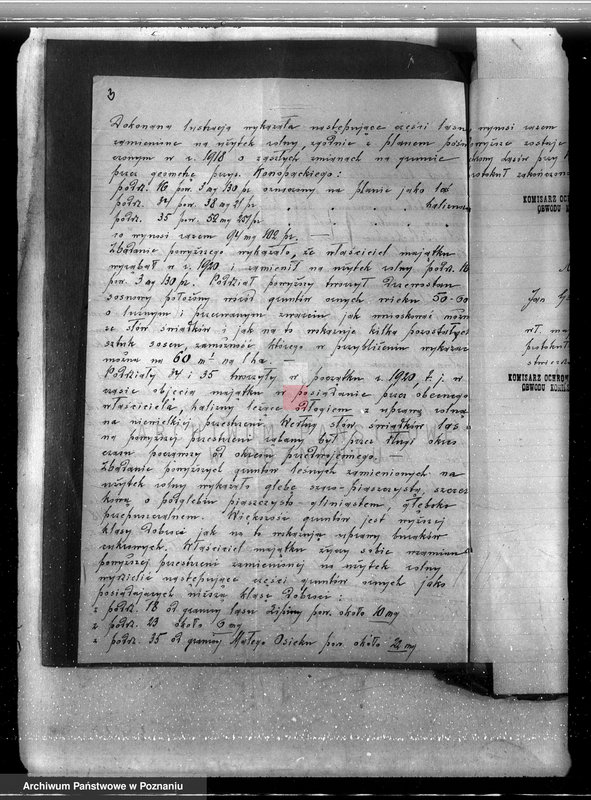 3
Dokonana lustracja wykazała następujące części lasu
zamienione na użytek rolny, zgodnie z planem
czonym w r. 1918 o zaszłych zmianach na gruncie
przez geometrę przys. Konopackiego:
podz. 16 pow. 3 mg 130 pr. oznaczony na planie jako las
podz. 34 pow. 38 mg 21 pr. " " " halizna
podz. 35 pow. 52 mg 251 pr. " " "
co wynosi razem 94 mg 102 pr. —
Zbadanie powyższego wykazało, że właściciel majątku
wyrąbał w r. 1920 i zamienił na użytek rolny podz. 16
pow. 3 mg 130 pr. Poddział powyższy tworzył drzewostan
sosnowy położony wśród gruntów ornych wieku 50-60
o luźnym i przerwanym zwarciu jak wnioskować można
ze słów świadków i jak na to wskazuje kilka pozostałych
sztuk sosen, zamożność którego w przybliżeniu wykazać
można na 60 m³ na 1 ha.
Poddziały 34 i 35 tworzyły w początku r. 1920, t. j. w
czasie objęcia majątku w posiadanie przez obecnego
właściciela, halizny leżące odłogiem z uprawą rolną
na niewielkiej przestrzeni. Według słów świadków las
na powyższej przestrzeni rąbany był przez długi okres
czasu począwszy od okresu przedwojennego. —
Zbadanie powyższych gruntów leśnych zamienionych na
użytek rolny wykazało glebę szaro-piaszczystą,
o podglebiu piaszczysto gliniastem, głęboko
przepuszczalnem. Większość gruntów, jest wyższej
klasy dobroci jak na to wskazują uprawy buraków
cukrowych. Właściciel majątku życzy sobie wzamian
powyższej przestrzeni zamienionej na użytek rolny
wydzielić następujące części gruntów ornych jako
posiadających niższą klasę dobroci:
z podz. 18 od granicy lasu Lipiny pow. około 10 mg
z podz. 23 około 6 mg
z podz. 35 od granicy Małego Osieku pow. około 22 mg
wynosi razem
zostaje
przy
protokuł zakończono
KOMISARZ OCH
OBWODU K
Jan
wł. ma
protokół
stwierdza
KOMISARZ OCHRON
OBWODU
Archiwum Państwowe w Poznaniu